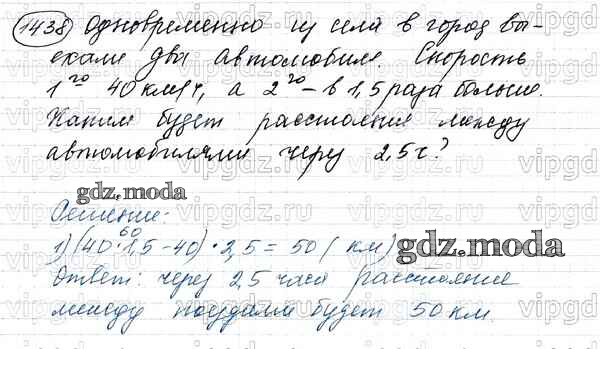 1438 Одновременно из села в город вы-
ехали два автомобиля. Скорость
1го 40 км/ч, а 2го – в 1,5 раза больше.
Каким будет расстояние между
автомобилями через 2,5 ч?
gdz.moda
Решение:
60
1) (40·1,5-40)·2,5=50 (км)
gdz.moda
Ответ: через 2,5 часа расстояние
между поездами будет 50 км.